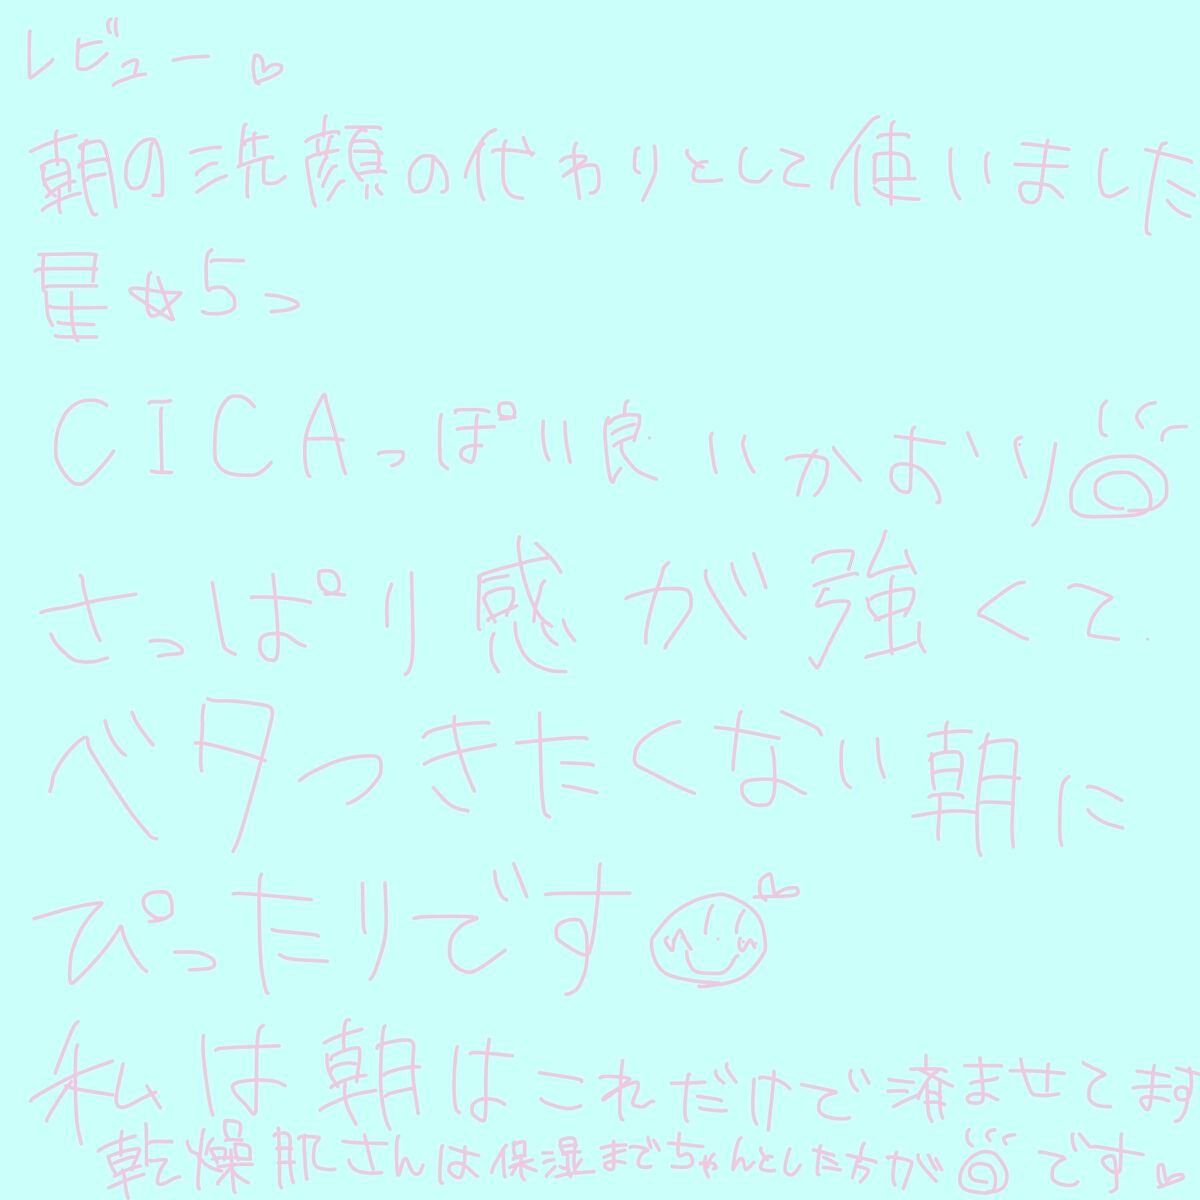 レビュー♡
朝の洗顔の代わりとして使いました
星☆5つ
CICAっぽい良いかおり◎
さっぱり感が強くて
ベタつきたくない朝に
ぴったりです
私は朝はこれだけで済ませてます
乾燥肌さんは保湿までちゃんとした方が◎です♡